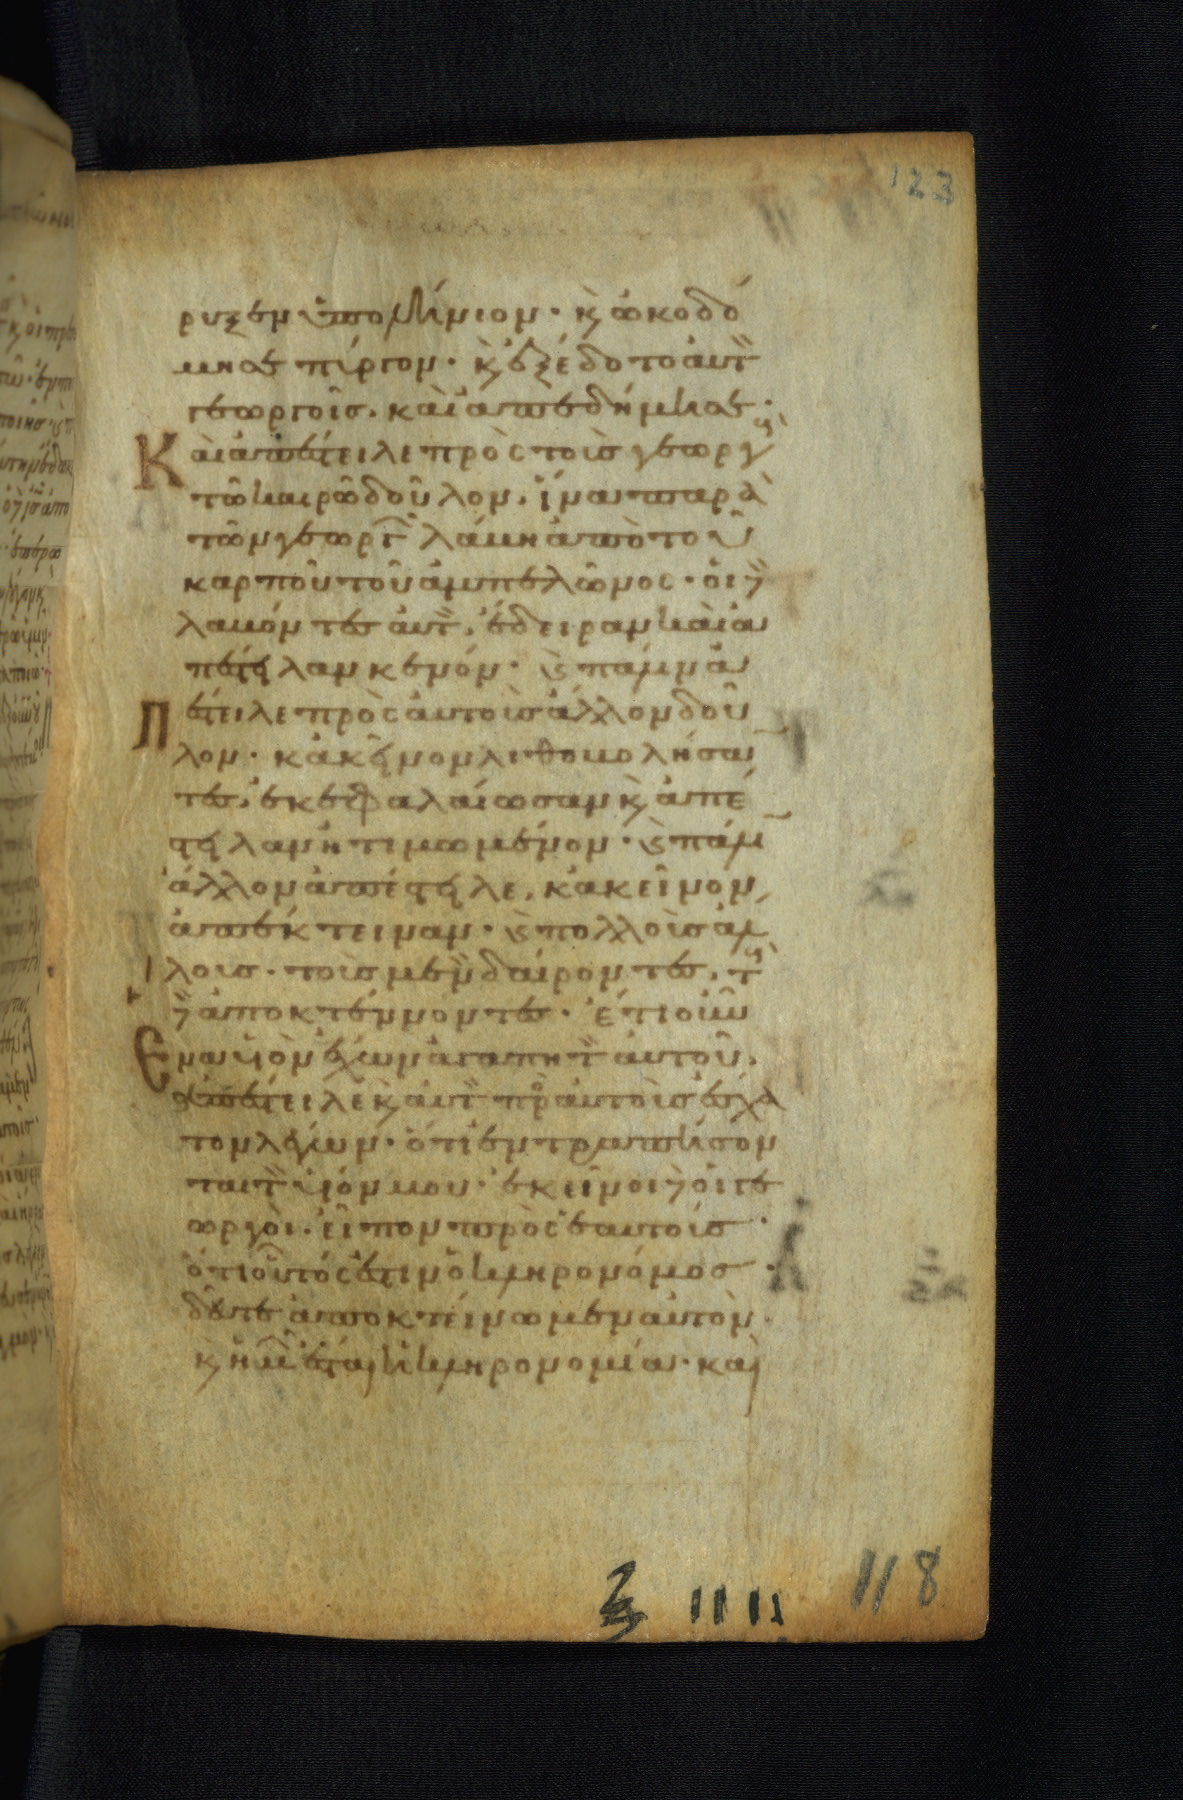 123
ρυξεν ὑπολήνιον· κ̀ ὠκοδό
μησε πύργον· κ̀ ἐξέδοτο ἀυτ̏
γεωργοῖς. καὶ ἀπεδήμησε·
Καὶ ἀπέστειλε πρὸς τοὺς γεωργ
τῶ καιρῶ δοῦλον. ἵνα παρὰ
τῶν γεωργ λάβη ἀπὸ τοῦ
καρποῦ τοῦ ἀμπελῶνος· ὁι
λαβόντες ἀυτ̏. ἔδειραν καὶ ἀ
πέστειλαν κενόν· κ̀ πάλιν ἀ
Πέστειλε πρὸς ἀυτοὺς ἄλλον δοῦ
λον· κἀκεῖνον λιθοβολήσαν
τες. ἐκεφαλαίωσαν κ̀ ἀπέ
στειλαν ἠτιμωμένον· κ̀ πάλιν
ἄλλον ἀπέστειλε. κἀκεῖνον
ἀπέκτειναν· κ̀ πολλοὺς ἄλ
λους· τοὺς μὲν δαίροντες. τ
ἀποκτέννοντες· ἔτι οὖν
Ἕνα υἱὸν ἔχων ἀγαπητ̏ ἀυτοῦ.
ἀπέστειλε κ̀ ἀυτ̏ πρ ἀυτοὺς ἔσχα
τον λέγων· ὅτι ἐντραπήσον
ται τ̏ υἱόν μου· ἐκεῖνοι οἱ γε
ωργοὶ. εἶπον πρὸς ἑαυτούς·
ὅτι οὗτός ἐστιν ὁ κληρονόμος·
δεῦτε ἀποκτείνωμεν ἀυτὸν·
κ̀ ἡμ ἔσται ἡ κληρονομία· καὶ
118